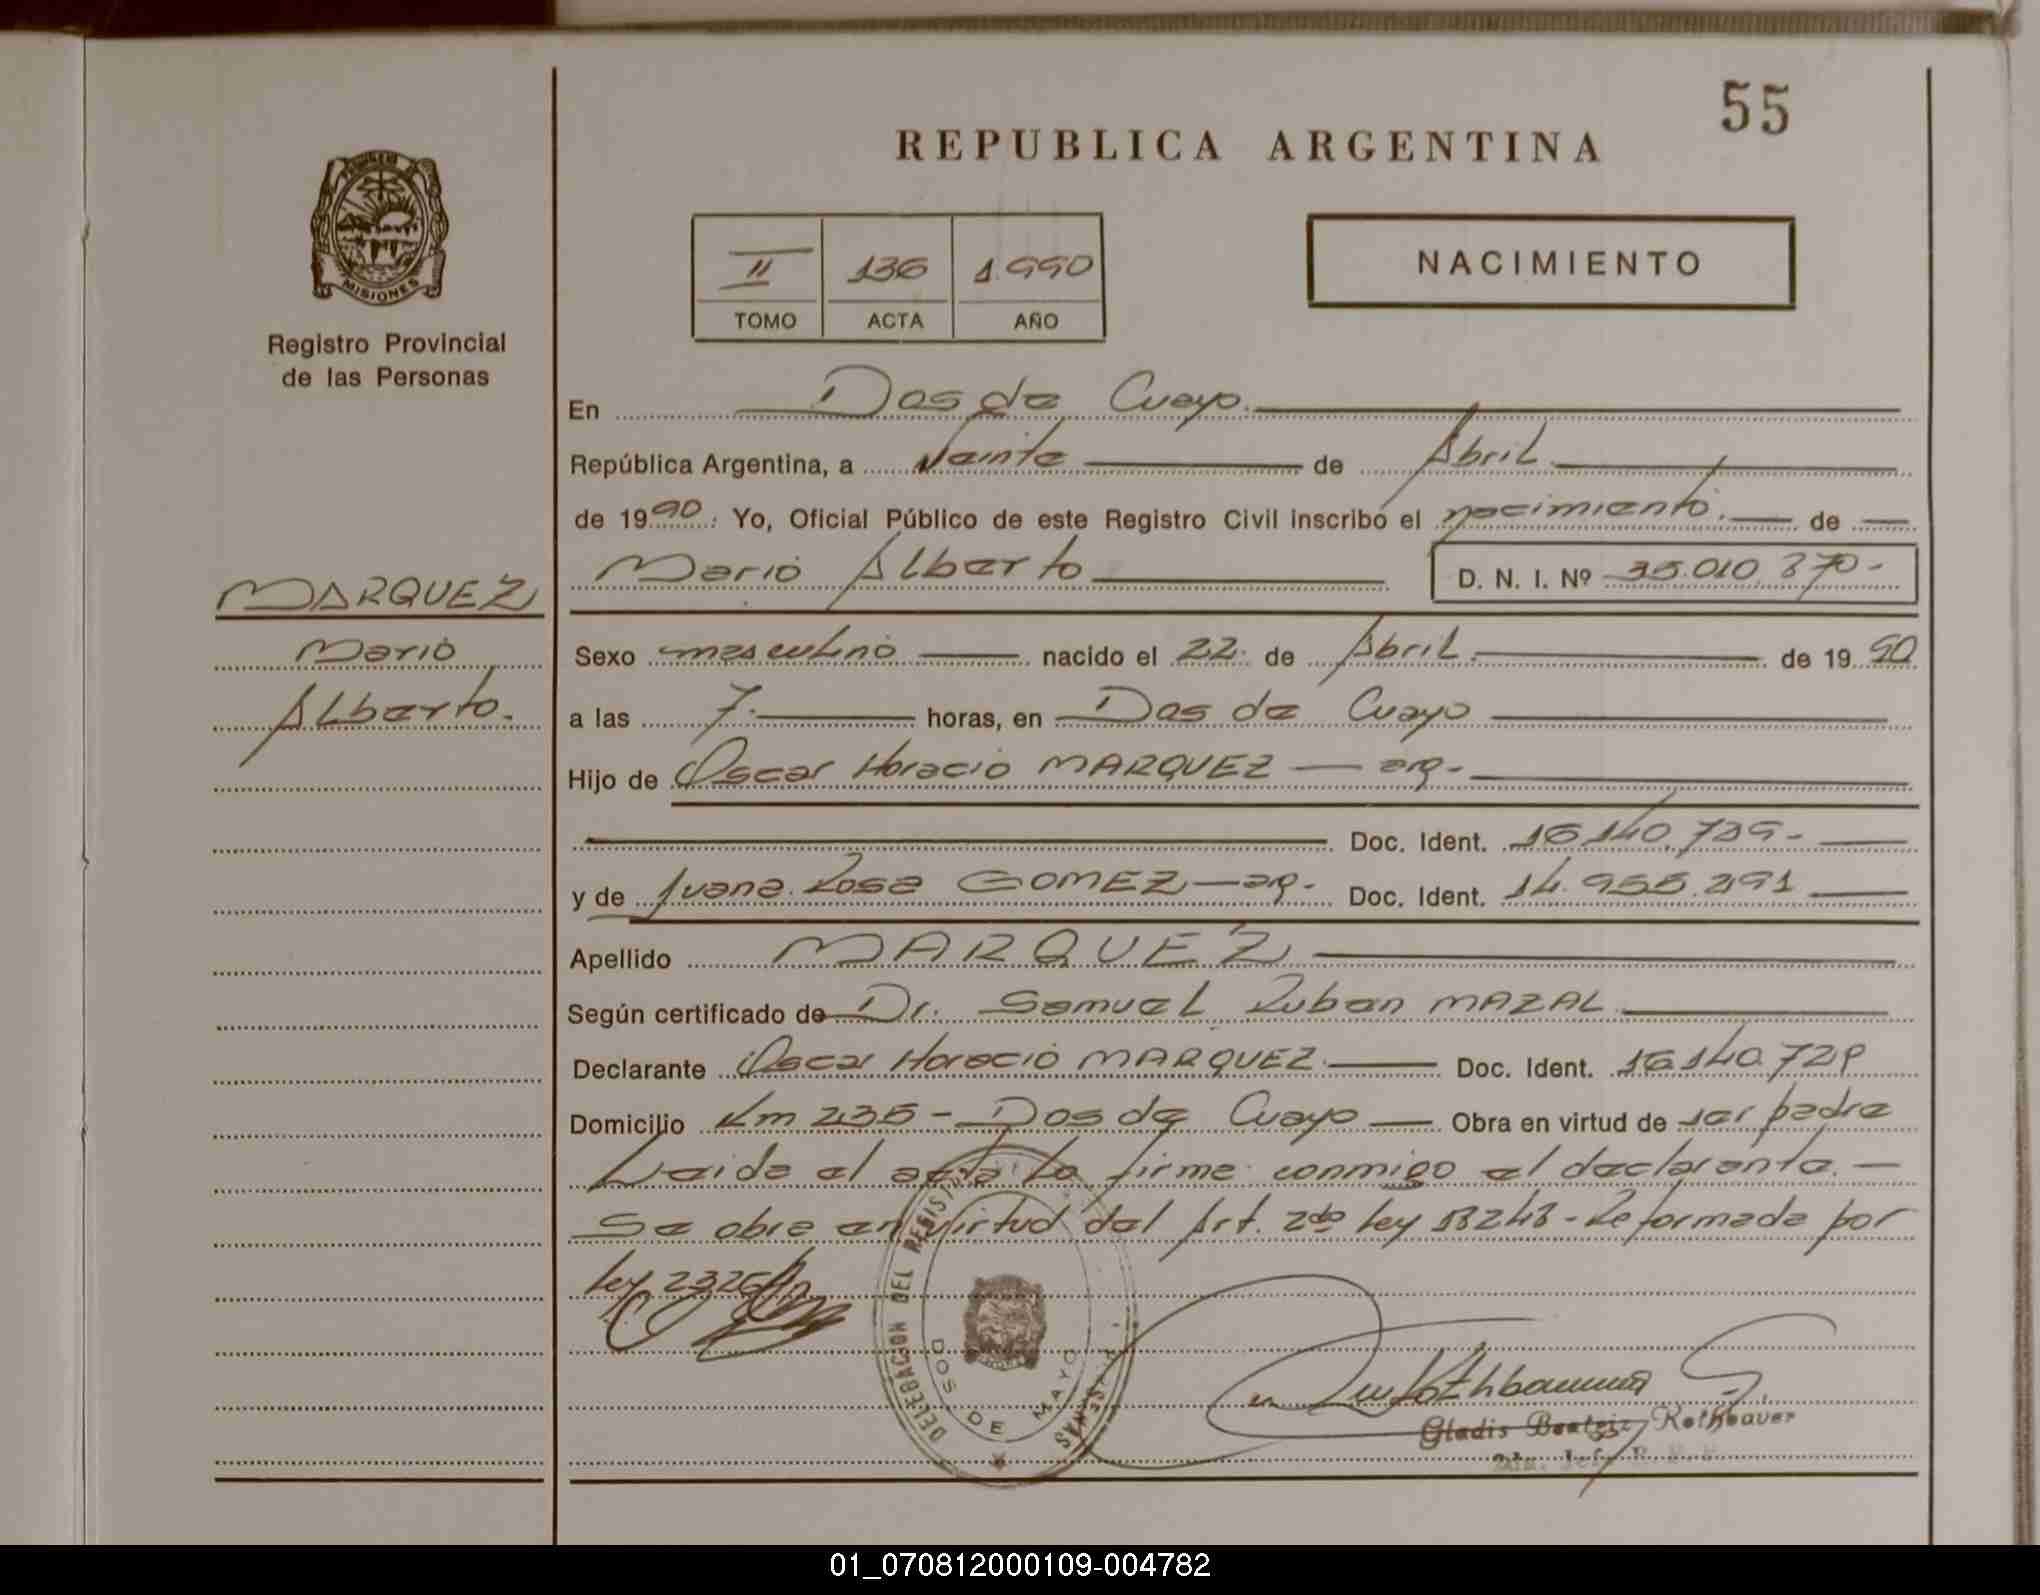 55
REPUBLICA ARGENTINA
MISIONES
Registro Provincial
de las Personas
II 136 1.990
TOMO ACTA AÑO
NACIMIENTO
En Dos de Mayo.
República Argentina, a Veinte de Abril
de 1990. Yo, Oficial Público de este Registro Civil inscribo el nacimiento. de
MARQUEZ
Mario
Alberto.
Mario Alberto D. N. I. Nº 35.010.370-
Sexo masculino nacido el 22. de Abril. de 1990
a las 7. horas, en Dos de Mayo
Hijo de Oscar Horacio MARQUEZ — arg-
Doc. Ident. 16.140.729-
y de Juana Rosa GOMEZ — arg- Doc. Ident. 14.955.291
Apellido MARQUEZ
Según certificado de Dr. Samuel Ruben MAZAL
Declarante Oscar Horacio MARQUEZ. Doc. Ident. 16.140.729
Domicilio Km 235 - Dos de Mayo Obra en virtud de ser padre
Leida el acta la firma conmigo el declarante. —
Se obra en virtud del Art. 2do Ley 18248 - Reformada por
Ley
DELEGACION DEL REGISTRO
MISIONES
DOS DE MAYO
Gladis Beatriz Rothbauer
01_070812000109-004782